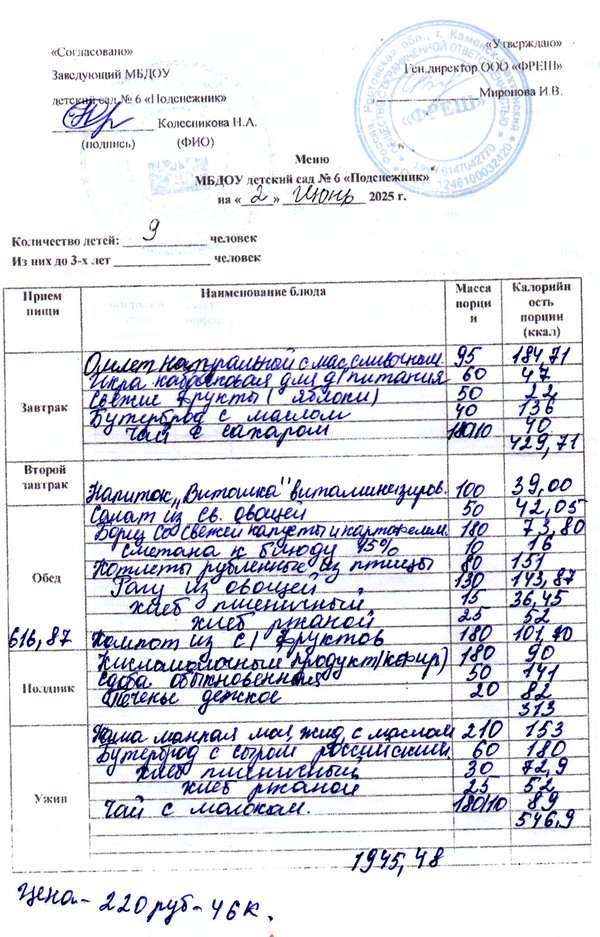 «Согласовано»
«Утверждаю»
Заведующий МБДОУ
Ген.директор ООО «ФРЕШ»
детский сад № 6 «Подснежник»
Миронова И.В.
Колесникова Н.А.
(подпись) (ФИО)
Меню
МБДОУ детский сад № 6 «Подснежник»
на « 2 » Июнь 2025 г.
Количество детей: 9 человек
Из них до 3-х лет человек
Прием пищи Наименование блюда Масса порции Калорийность порции (ккал)
Завтрак
Омлет натуральной с мас.сливочном 95 184,71
Икра кабачковая для д/питания 60 47
Свежие фрукты ( яблоки) 50 22
Бутерброд с маслом 40 136
Чай с сахаром 180/10 40
429,71
Второй завтрак
Напиток „Витошка" витаминизиров. 100 39,00
Обед
Салат из св. овощей 50 42,05
Борщ со свежей капусты и картофелем. 180 73,80
сметана к блюду 15% 10 16
Котлеты рубленные из птицы 80 151
Рагу из овощей 130 143,87
хлеб пшеничный 15 36,45
хлеб ржаной 25 52
616,87 Компот из с/ фруктов 180 101,70
Полдник
Кисломолочный продукт/кефир) 180 90
Сдоба обыкновенная 50 141
Печенье детское 20 82
313
Ужин
Каша манная мол. жид. с маслом 210 153
Бутерброд с сыром российским 60 180
хлеб пшеничный 30 72,9
хлеб ржаной 25 52
Чай с молоком. 180/10 89
546,9
1945,48
Цена - 220 руб - 46 к.
«ФРЕШ»